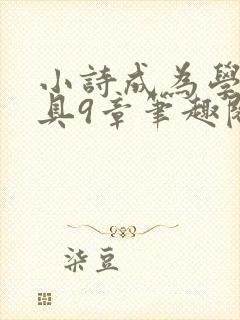 小詩成為學
具9章筆趣閣
柒豆